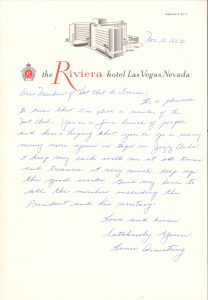 Nov. 12, 1962
the Riviera hotel Las Vegas, Nevada
Dear Members of Hot Club de France.
It's a pleasure
to know that I'm still a member of the
Hot Club. You're a fine bunch of people
and here's hoping that you'll go a many,
many more years as tops in Jazz Clubs.
I keep my card with me at all times
and treasure it very much. Keep up
the good work. And my love to
all the members including the
President and his secretary.
Love and kisses
Satchmo'ly Yours
Louis Armstrong